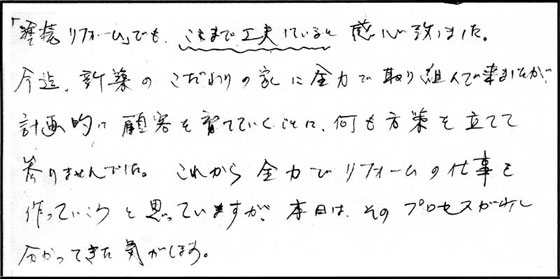 「塗装リフォーム」でも、ここまで工夫していると感心致しました。
今迄、新築のこだわりの家に全力で取り組んで来ましたが、
計画的に顧客を育てていくことに、何も方策を立てて
参りませんでした。これから全力でリフォームの仕事を
作っていこうと思っていますが、本日は、そのプロセスが少し
分かってきた気がします。